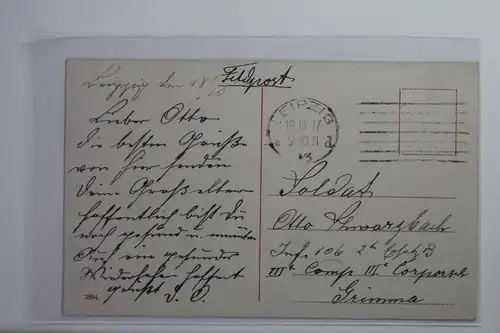 Leipzig den 18/10
Feldpost
Lieber Otto
die besten Grüße
von hier senden
Deine Großeltern
hoffentlich bist Du
noch gesund u. munter
Auf ein gesundes
Wiedersehen hoffent
grüßt d. O.
3994
LEIPZIG
18 10 17
9-10 N
1
*3
Soldat
Otto Schwarzbach
Inf. 106 2te Ersatz B
IIIte Comp III Corporal
Grimma